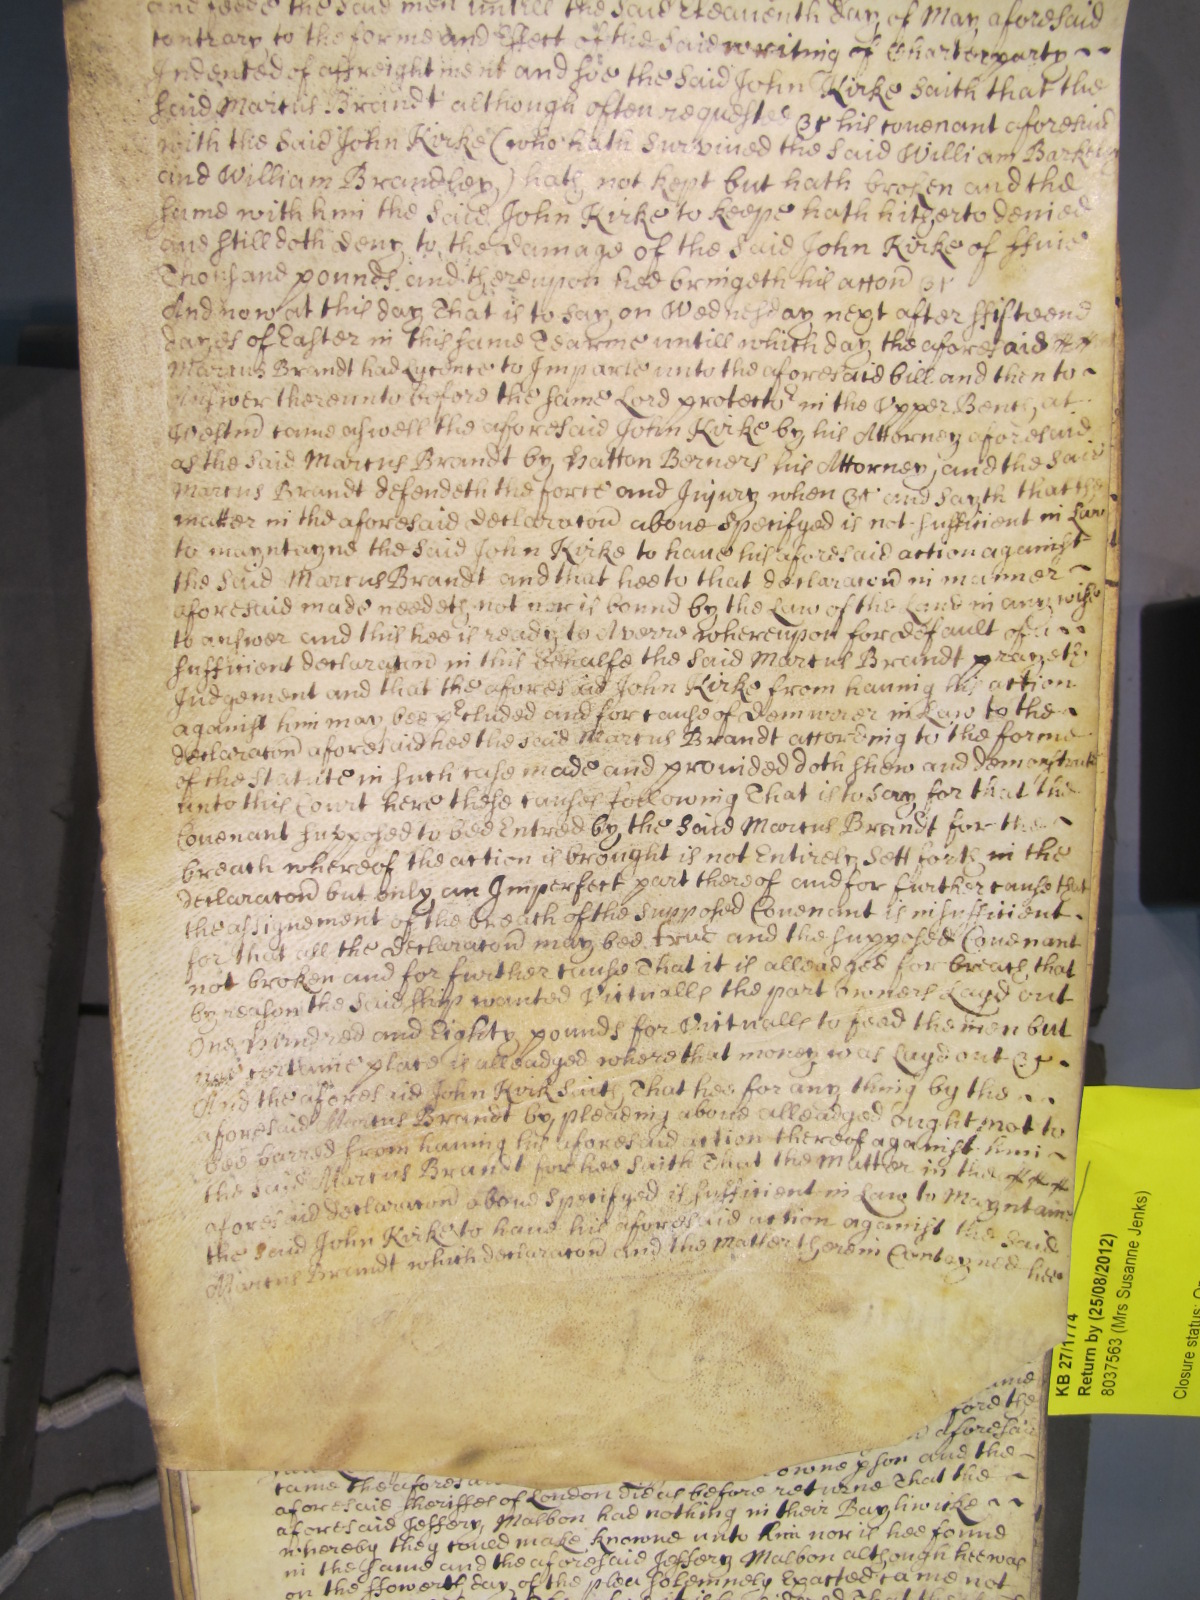 and feede the said men untill the said Eleaventh day of May aforesaid
contrary to the forme and Effect of the said writing of Charterparty
Indented of affreightment and soe the said John Kirke saith that the
said Marcus Brandt although often requested &c his covenant aforesaid
with the said John Kirke (who hath survived the said William Barkley
and William Brandley) hath not kept but hath broken and the
same with him the said John Kirke to keepe hath hitherto denied
and still doth deny to the damage of the said John Kirke of ffive
Thousand pounds and thereupon hee bringeth his accon &c
And now at this day That is to say on Wednesday next after ffifteene
dayes of Easter in this same Tearme untill which day the aforesaid
Marcus Brandt had Lycence to Imparle unto the aforesaid bill and then to
Answer thereunto before the same Lord protector in the Upper Bench at
Westm came aswell the aforesaid John Kirke by his Attorney aforesaid
as the said Marcus Brandt by Hatton Berners his Attorney and the said
Marcus Brandt defendeth the force and Injury when &c and sayth that the
matter in the aforesaid declaracon above specifyed is not sufficient in Law
to mayntayne the said John Kirke to have his aforesaid action against
the said Marcus Brandt and that hee to that declaracon in manner
aforesaid made needeth not nor is bound by the Law of the Land in any wise
to answer and this hee is ready to Averre whereupon for default of a
sufficient declaracon in this behalfe the said Marcus Brandt prayeth
Judgement and that the aforesaid John Kirke from having his action
against him may bee pcluded and for cause of demurrer in Law to the
declaracon aforesaid hee the said Marcus Brandt according to the forme
of the statute in such case made and provided doth shew and demonstrate
unto this Court here these causes following That is to say for that the
Covenant supposed to bee Entred by the said Marcus Brandt for the
breach whereof the action is brought is not Entirely sett forth in the
declaracon but only an Imperfect part thereof and for further cause that
the assignement of the breach of the supposed Covenant is insufficient
for that all the declaracon may bee true and the supposed Covenant
not broken and for further cause That it is alleadged for breach that
by reason the said ship wanted Victualls the part owners Layd out
One Hundred and Eighty pounds for Victualls to feed the men but
noe certaine place is alleadged where that money was Layd out &c
And the aforesaid John Kirk saith That hee for any thing by the
aforesaid Marcus Brandt by pleading above alleadged ought not to
bee barred from having his aforesaid action thereof against him
the said Marcus Brandt for hee saith That the Matter in the
aforesaid declaracon above specifyed is sufficient in Law to Mayntaine
the said John Kirke to have his aforesaid action against the said
Marcus Brandt which declaracon and the Matter therein Contayned hee
fore the
aforesaid
came the aforesaid
owne pson and the
aforesaid Sheriffes of London did as before returne That the
aforesaid Jeffery Malbon had nothing in their Bayliwicke
whereby they could make knowne unto him nor is hee found
in the same and the aforesaid Jeffery Malbon although hee was
on the ffowerth day of the plea solemnely Exacted came not
KB 27/1774
Return by (25/08/2012)
8037563 (Mrs Susanne Jenks)
Closure status: